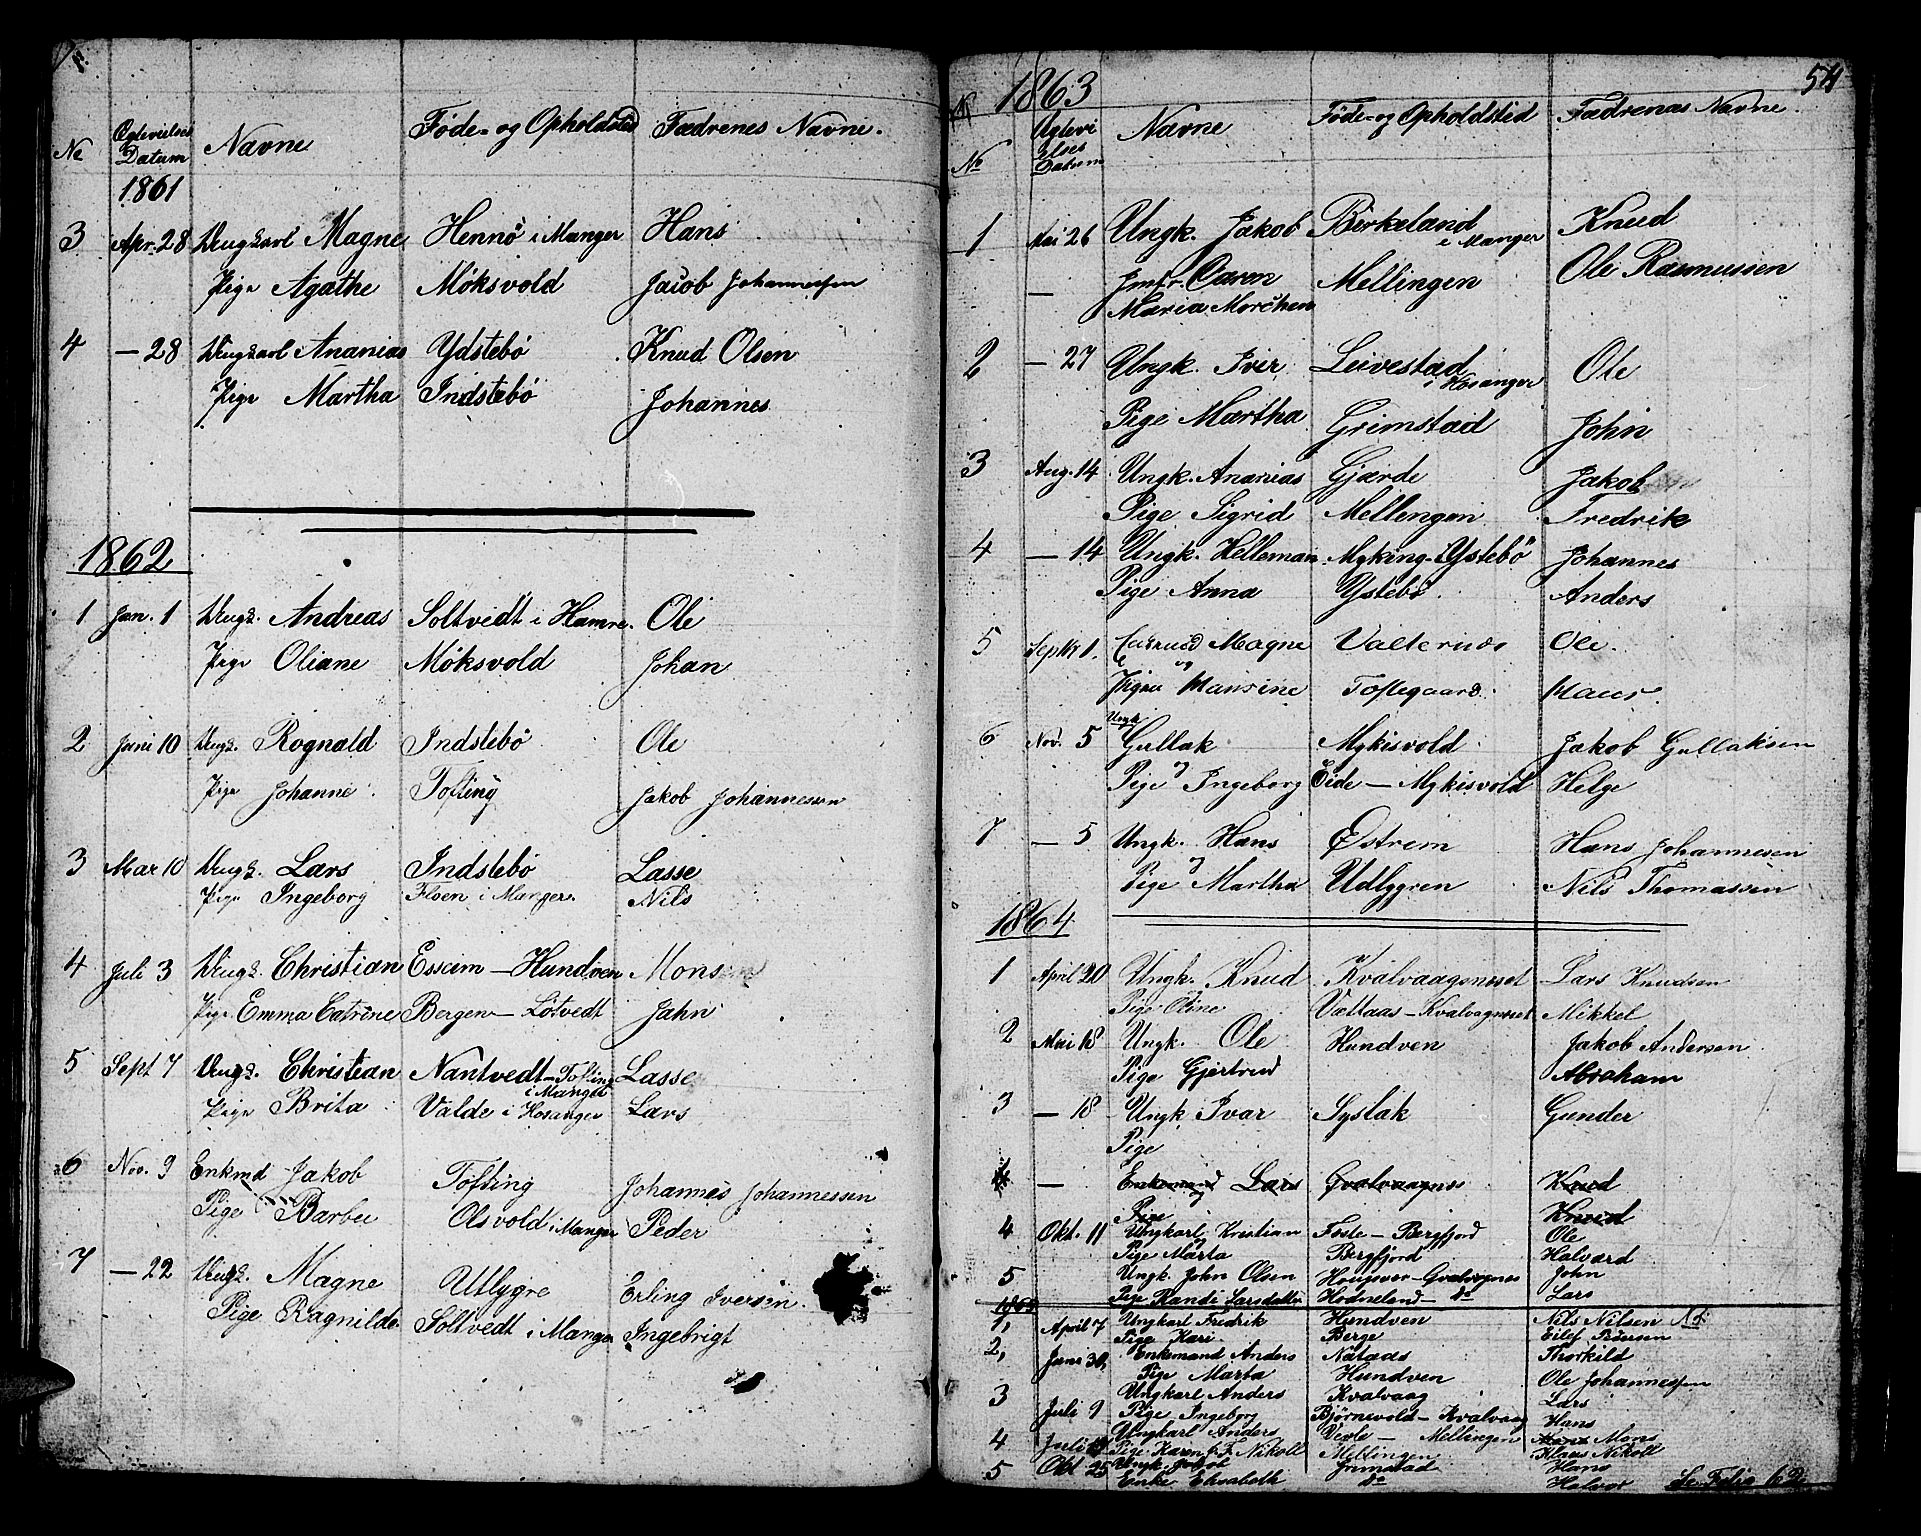 No Datum Navne Føde- og Opholdsted Fædrenes Navne.
1861
3 Apr. 28 Ungkarl Magne Hennö i Manger Hans
Pige Agathe Möksvold Jacob Johannessen
4 — 28 Ungkarl Ananias Ydstebö Knud Olsen
Pige Martha Indstebö Johannes
1862
1 Jan. 1 Ungk. Andreas Soltvedt i Hamre. Ole
Pige Oliane Möksvold Johan
2 Juni 10 Ungk. Rognald Indstebö Ole
Pige Johanne Tofting Jakob Johannessen
3 Mar 10 Ungk. Lars Indstebö Lasse
Pige Ingeborg Floen i Manger. Nils
4 Juli 3 Ungk. Christian Esseim—Hundven Mons
Pige Emma Catrine Bergen—Lötvedt Jahn
5 Sept 7 Ungk. Christian Nantvedt—Tofting Lasse
i Manger
Pige Brita Valde i Hosanger Lars
6 Nov. 9 Enkmd Jakob Tofting Johannes Johannessen
Pige Barbu Olsvold i Manger Peder
7 — 22 Ungk. Magne Utlygre Erling Iversen.
Pige Ragnilde Soltvedt i Manger Ingebrigt
54
1863
No Datum Navne Føde- og Opholdstid Fædrenas Navne.
1 Mai 26 Ungk. Jakob Birkeland i Manger Knud
— Jmfr. Caren Mellingen Ole Rasmussen
Maria Morchen
2 — 27 Ungk. Iver Leivestad i Hosanger Ole
Pige Martha Grimstad John
3 Aug. 14 Ungk. Ananias Gjærde Jakob
Pige Sigrid Mellengen Fredrik
4 — 14 Ungk. Helleman Myking—Ystebö Johannes
Pige Anna Ystebö. Anders
5 Septbr 1. Magne Valternes Ole.
og
Pigen Hansine Toftegaard. Klaus.
6 Nov. 5 Ungk Gullak Mykisvold Jakob Gullaksen
Pige Ingeborg Eide—Mykisvold Helge
7 — 5 Ungk. Hans Østrem Hans Johannesen
Pige Martha Udlygren Nils Thomassen
1864
1 April 20 Ungk. Knud Kvalvaagsneset Lars Knudsen
Pige Oline Valtaas—Kvalvagneset Mikkel
2 Mai 18 Ungk. Ole Hundven Jakob Andersen
Pige Gjertrud Abraham
3 — 18 Ungk. Ivar Syslak Gunder
Pige
4 — Enkemand Lars Qvalvaagnes Knud
Pige Knud
4 Okt. 11 Ungkarl Kristian Foste—Bergfjord Ole
Pige Marta Bergfjord Halvard
5 Ungk. John Olsen Hougsvær—Qvalvognes John
Pige Randi Larsdatter Hodneland—do Lars
1, April 7 Ungkarl Fredrik Hundven Nils Nilsen
Pige Kari Berge Eilef Pedersen
2, Juni 30, Enkemand Anders Nataas Thorkild
Pige Marta Hundven Ole Johannessen
3 Juli 9 Ungkarl Anders Kvalvaag Lars
Pige Ingeborg Bjørnevold—Kvalvaag Hans
4 Juli Ungkarl Anders Vexle—Mellingen Mons
Pige Karen J. F. Nikoll Mellingen Klaus Nikoll
5 Okt 25 Ungk. Jakob Grimstad Hans
Enke Elisabeth do
Se Folio 62.